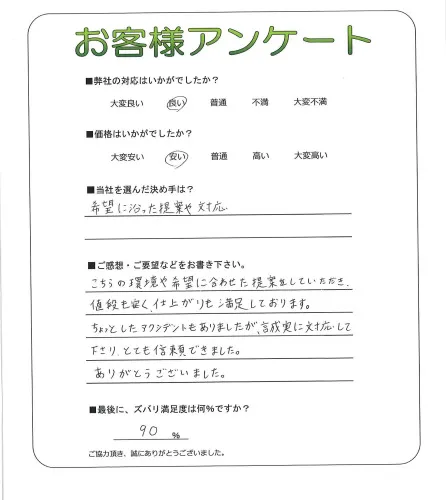 お客様アンケート
■弊社の対応はいかがでしたか？
大変良い 良い 普通 不満 大変不満
■価格はいかがでしたか？
大変安い 安い 普通 高い 大変高い
■当社を選んだ決め手は？
希望に沿った提案や対応
■ご感想・ご要望などをお書き下さい。
こちらの環境や希望に合わせた提案をしていただき、
値段も安く、仕上がりも満足しております。
ちょっとしたアクシデントもありましたが、誠実に対応して
下さり、とても信頼できました。
ありがとうございました。
■最後に、ズバリ満足度は何％ですか？
90 ％
ご協力頂き、誠にありがとうございました。